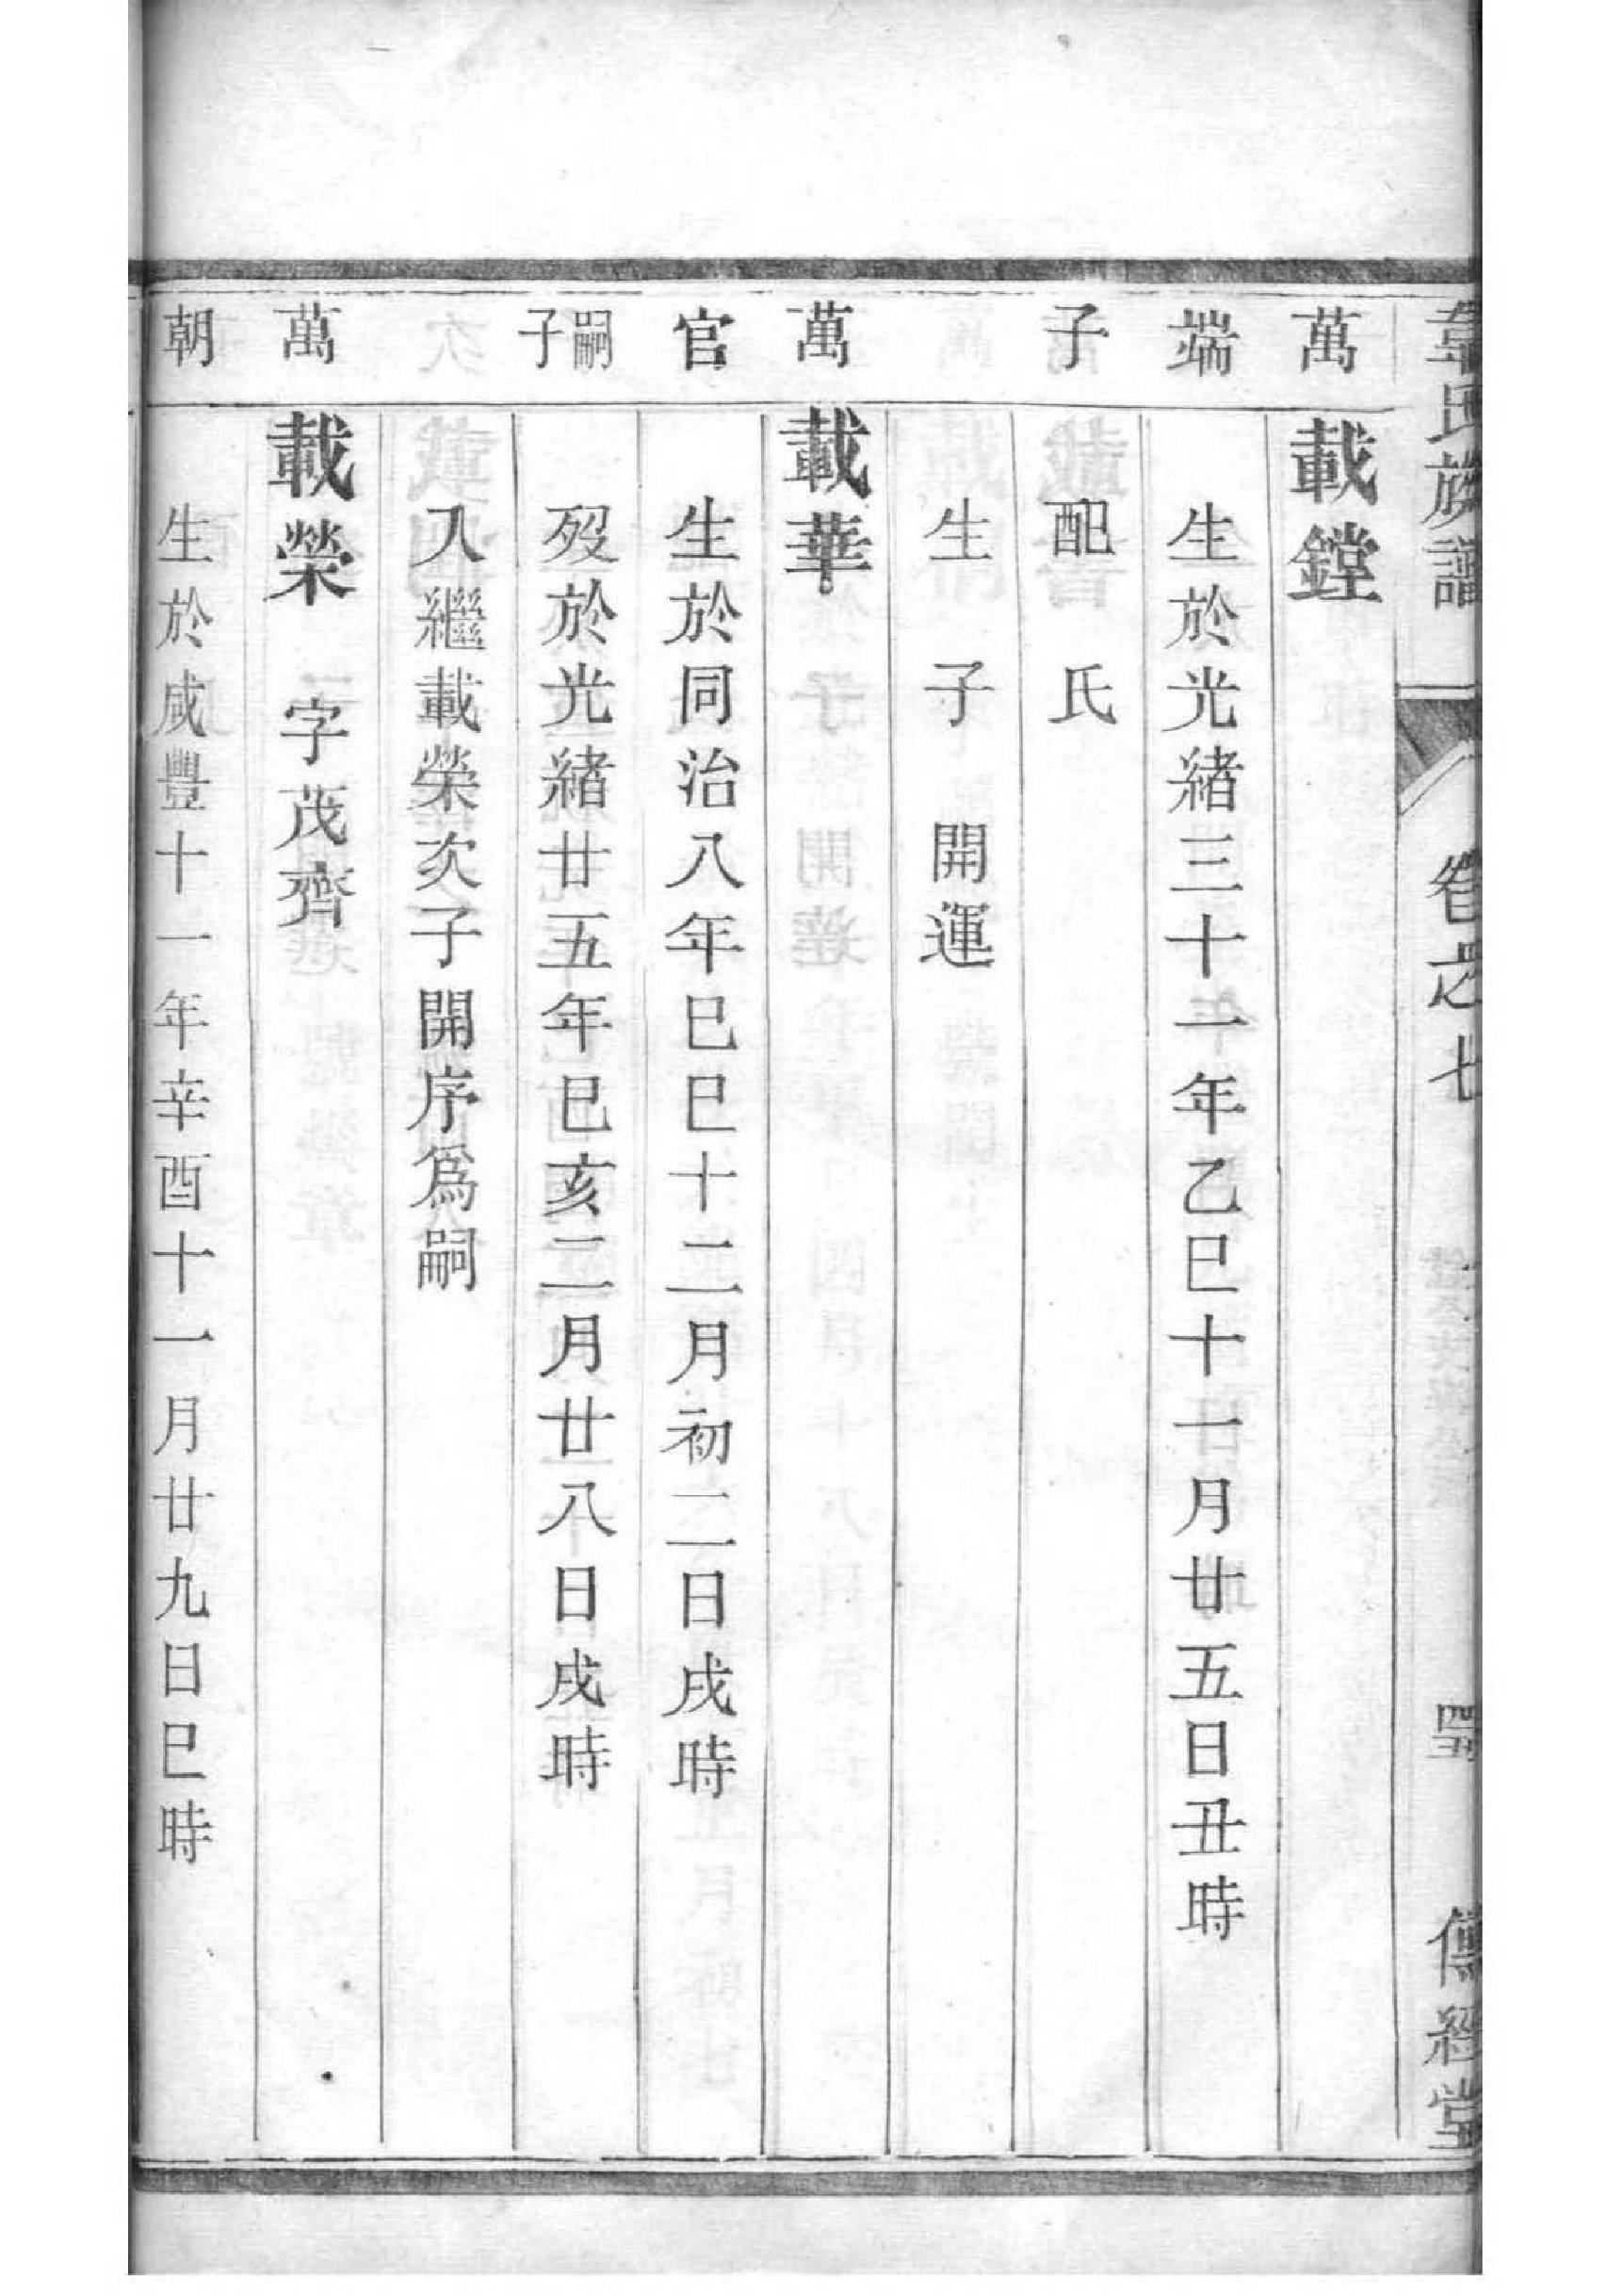 韋氏族譜 卷之七 傳經堂
萬 載鏜
端 生於光緒三十一年乙巳十一月廿五日丑時
子 配 氏
生 子 開運
萬 載華
官 生於同治八年巳巳十二月初二日戌時
嗣子 歿於光緒廿五年巳亥二月廿八日戌時
入繼載榮次子開序爲嗣
萬 載榮 字茂齊
朝 生於咸豐十一年辛酉十一月廿九日巳時